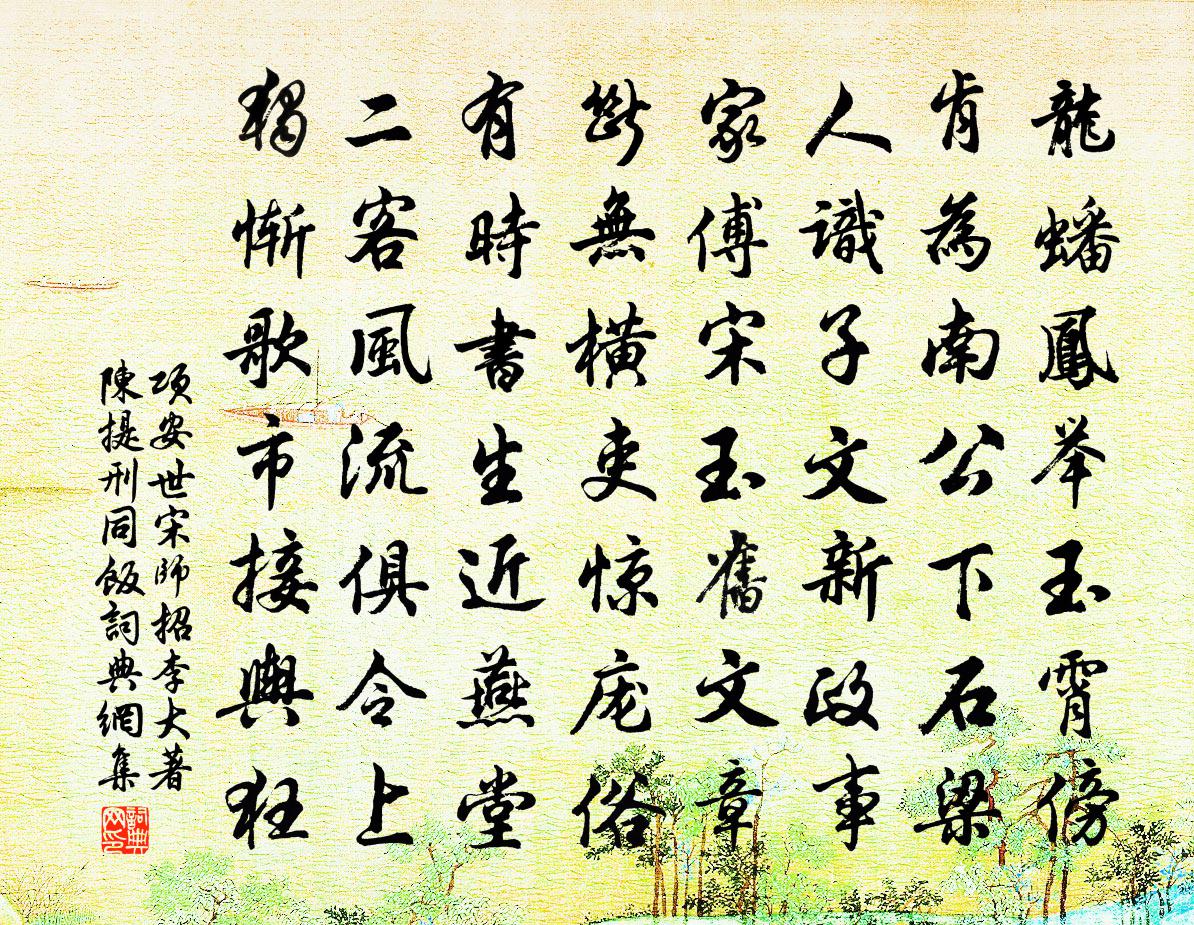 龍蟠鳳举玉霄傍
肯為南公下石梁
人識子文新政事
家傅宋玉舊文章
斷無橫吏惊庞俗
有時書生近燕堂
二客風流俱令上
獨慚歌市接輿狂
項安世宋師招李大著
陳提刑同飯詞典網集
詞典網印